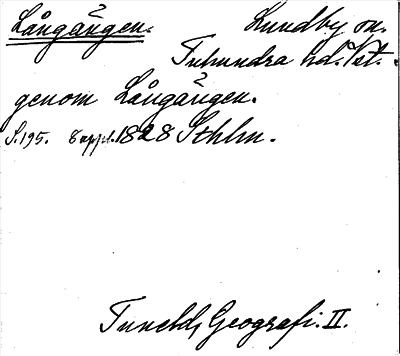 Långängen. Lundby sn.
Tuhundra hd. Vst.
genom Långängen.
S.195. 8 uppl. 1828 Sthlm.
Tuneld, Geografi. II.